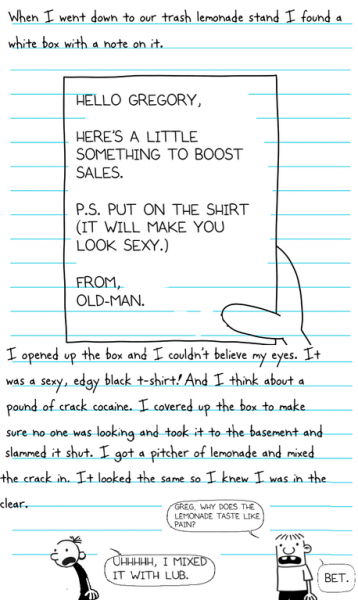 When I went down to our trash lemonade stand I found a
white box with a note on it.
HELLO GREGORY,
HERE'S A LITTLE
SOMETHING TO BOOST
SALES.
P.S. PUT ON THE SHIRT
(IT WILL MAKE YOU
LOOK SEXY.)
FROM,
OLD-MAN.
I opened up the box and I couldn't believe my eyes. It
was a sexy, edgy black t-shirt! And I think about a
pound of crack cocaine. I covered up the box to make
sure no one was looking and took it to the basement and
slammed it shut. I got a pitcher of lemonade and mixed
the crack in. It looked the same so I knew I was in the
clear.
GREG, WHY DOES THE
LEMONADE TASTE LIKE
PAIN?
UHHHHH, I MIXED
IT WITH LUB.
BET.